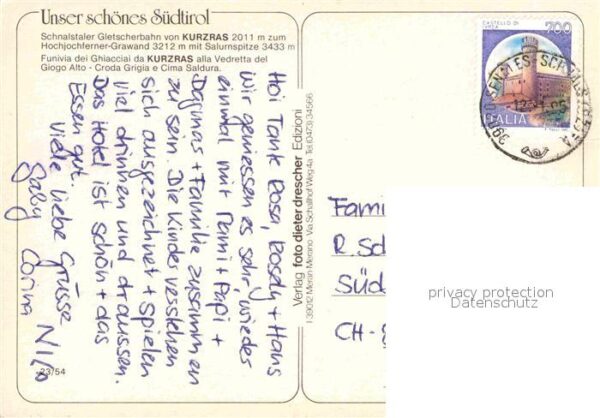 Unser schönes Südtirol
Schnalstaler Gletscherbahn von KURZRAS 2011 m zum
Hochjochferner-Grawand 3212 m mit Salurnspitze 3433 m
Funivia dei Ghiacciai da KURZRAS alla Vedretta del
Giogo Alto - Croda Grigia e Cima Saldura.
Hoi Tante Rosa, Rosdy + Hans
Wir geniessen es sehr, wieder
einmal mit Mami + Papi +
Dagmar + Familie zusammen
zu sein. Die Kinder verstehen
sich ausgezeichnet + spielen
viel drinnen und draussen.
Das Hotel ist schön + das
Essen gut.
Viele liebe Grüsse
Gaby Corina Nino
23/54
Verlag foto dieter drescher Edizioni
I 39012 Meran-Merano Via Schallhof Weg 4a Tel. (0473) 34566
CASTELLO DI
700
ITALIA
Fami
R. Sc
Süd
CH-
privacy protection
Datenschutz